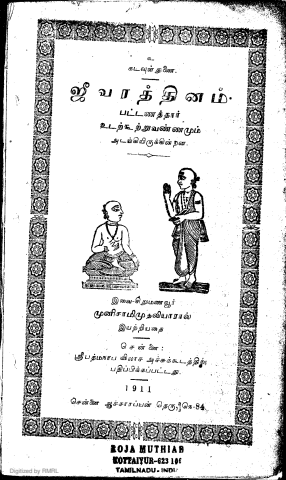 உ
கடவுள் துணை.
ஜீவரத்தினம்.
பட்டணத்தார்
உடற்கூற்றுவண்ணமும்
அடங்கியிருக்கின்றன
இவை-சிறுமணவூர்
முனிசாமிமுதலியாரால்
இயற்றியதை
சென்னை:
ஸ்ரீபத்மநாப விலாச அச்சுக்கூடத்திற்
பதிப்பிக்கப்பட்டது.
1911
சென்னை ஆச்சாரப்பன் தெரு கெ-84
ROJA MUTHIAH
KOTTAIYUR-623 106
TAMILNADU - INDIA
Digitized by RMRL